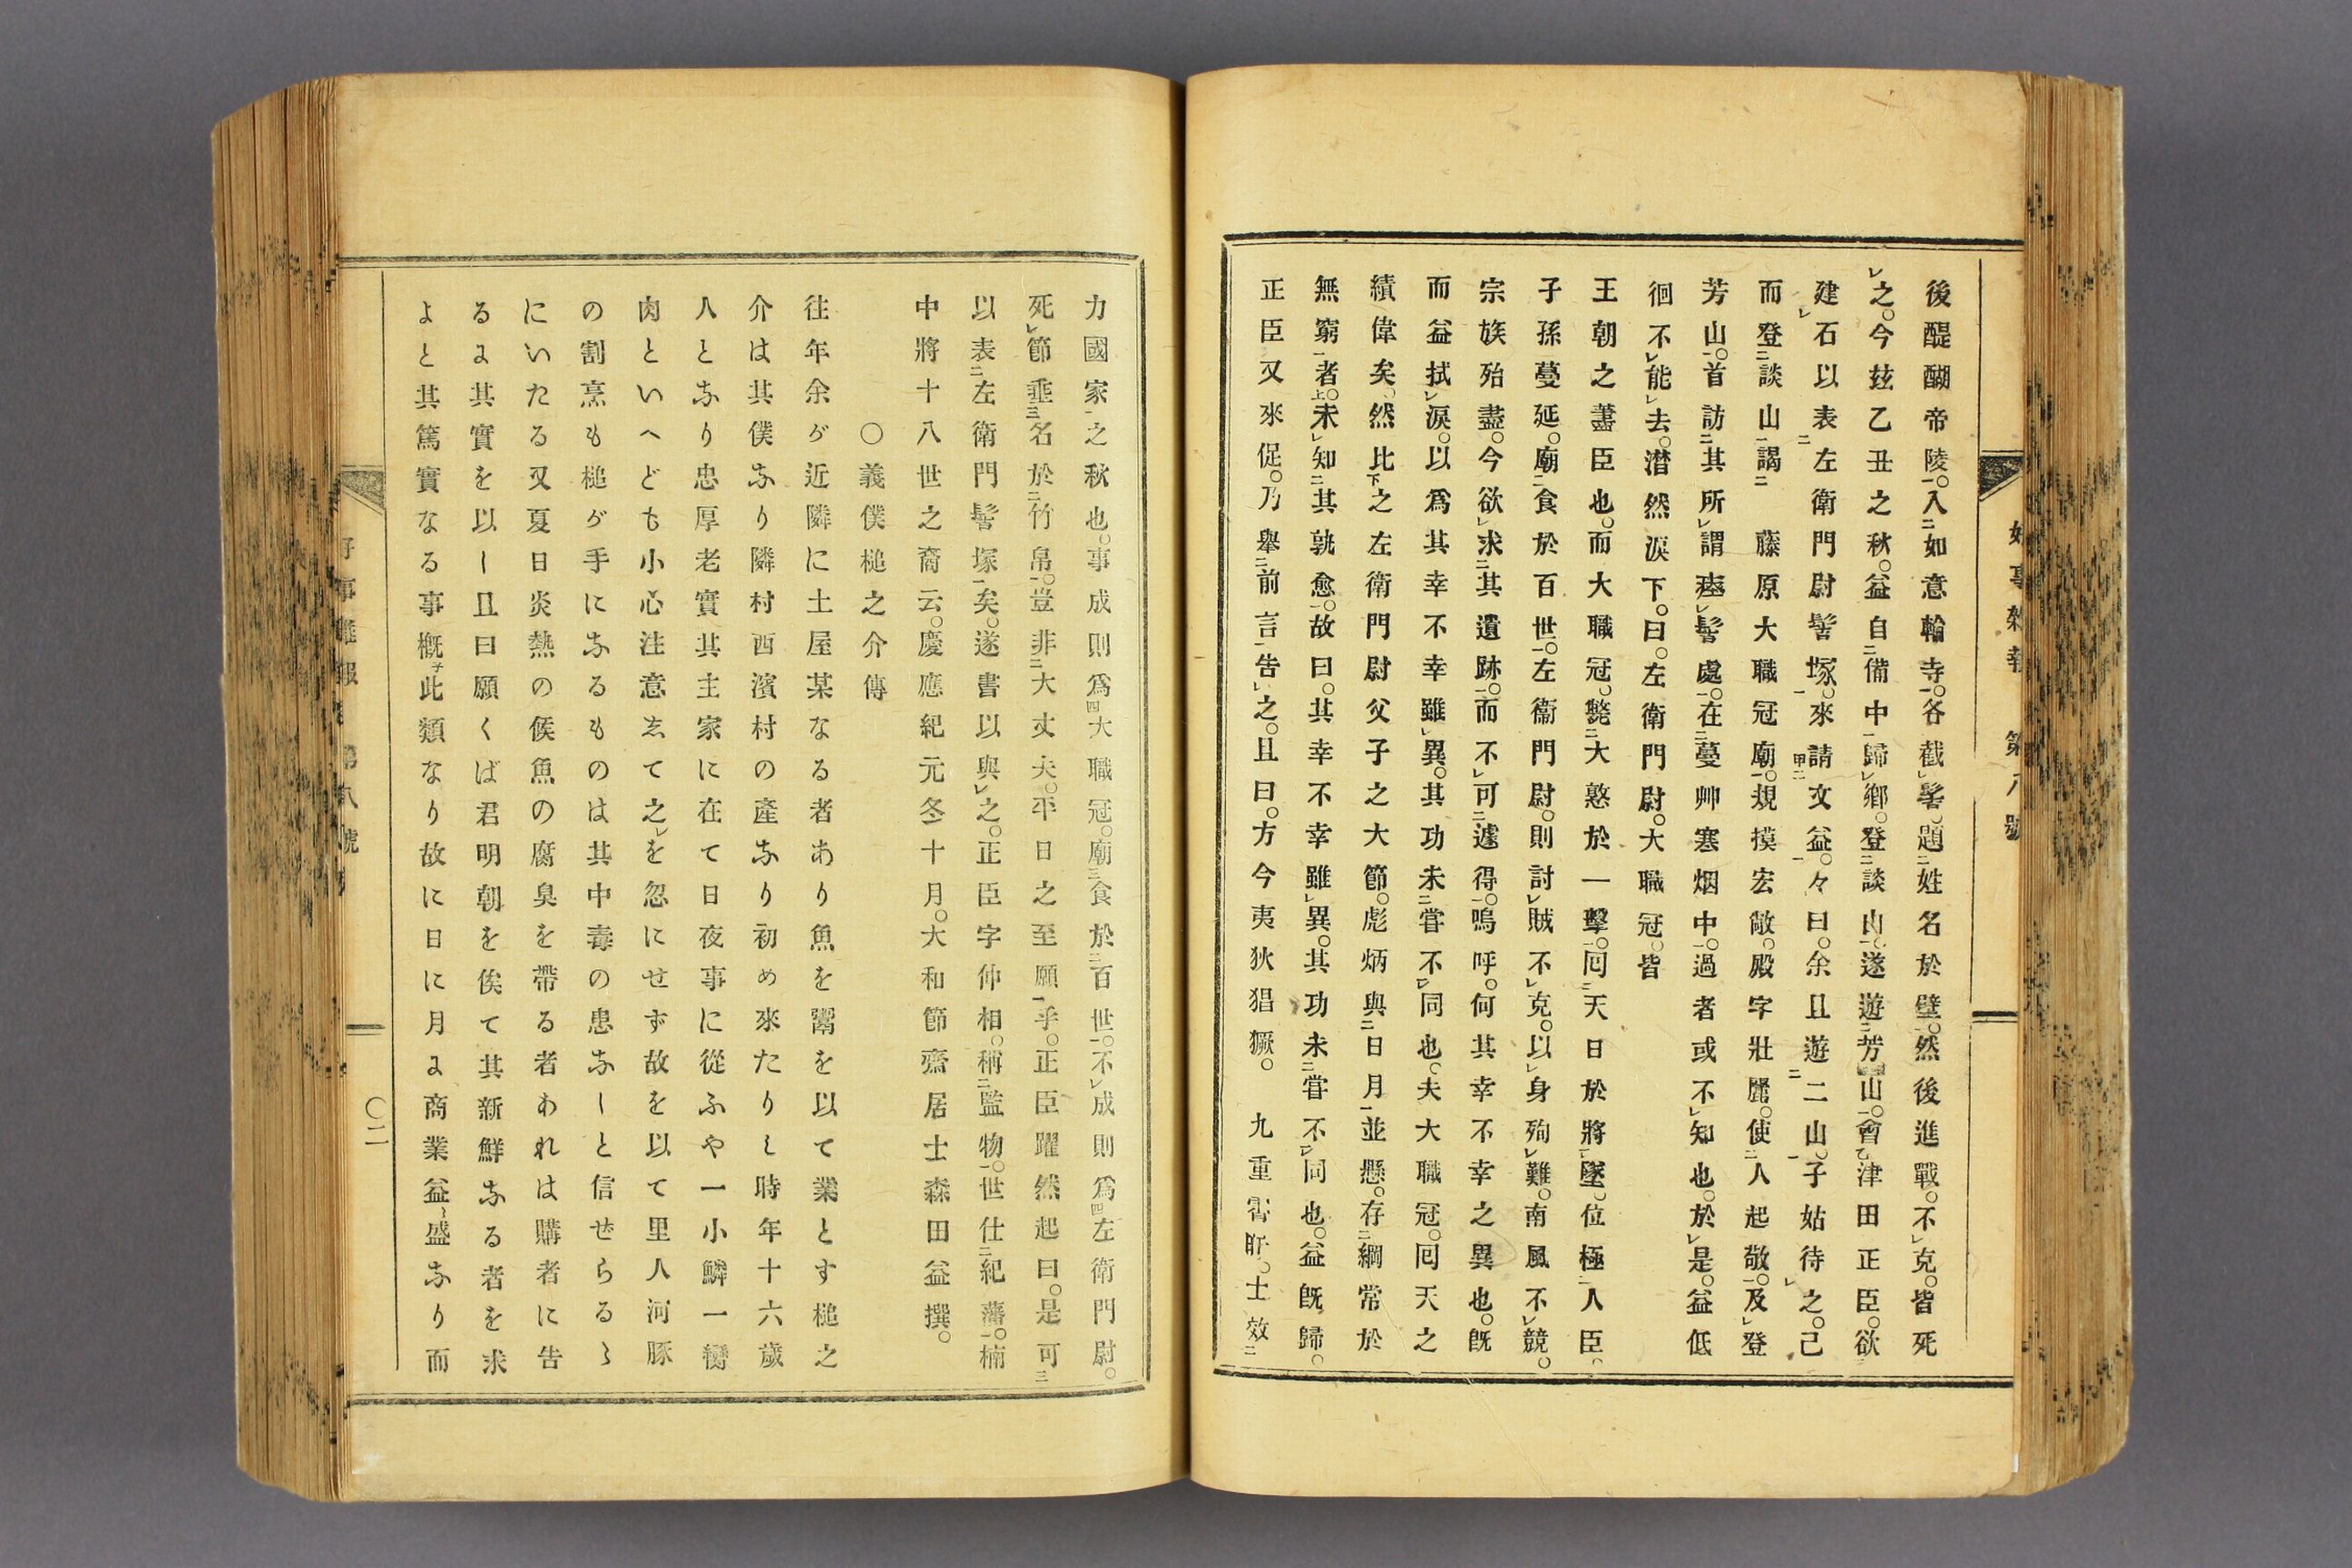 後醍醐帝陵。入如意輪寺。各截髻題姓名於壁。然後進戰。不克。皆死
之。今玆乙丑之秋。益自備中歸鄉。登談山。遂遊芳山。會津田正臣。欲
建石以表左衛門尉髻塚。來請文益。々曰。余且遊二山。子姑待之。己
而登談山謁藤原大職冠廟。規摸宏敞。殿宇壯麗。使人起敬。及登
芳山。首訪其所謂瘞髻處。在蔓艸寒烟中。過者或不知也。於是。益低
徊不能去。潸然淚下。曰。左衛門尉。大職冠。皆
王朝之藎臣也。而大職冠。斃大憝於一擊。回天日於將墜。位極人臣。
子孫蔓延。廟食於百世。左衞門尉。則討賊不克。以身殉難。南風不競。
宗族殆盡。今欲求其遺跡。而不可遽得。嗚呼。何其幸不幸之異也。既
而益拭淚。以爲其幸不幸雖異。其功未嘗不同也。夫大職冠。回天之
績偉矣。然比之左衛門尉父子之大節。彪炳與日月並懸。存綱常於
無窮者。未知其孰愈。故曰。其幸不幸雖異。其功未嘗不同也。益既歸。
正臣又來促。乃舉前言告之。且曰。方今夷狄猖獗。九重霄旰。士效
力國家之秋也。事成則爲大職冠。廟食於百世。不成則爲左衛門尉。
死節垂名於竹帛。豈非大丈夫。平日之至願乎。正臣躍然起曰。是可
以表左衛門髻塚矣。遂書以與之。正臣字仲相。稱監物。世仕紀藩。楠
中將十八世之裔云。慶應紀元冬十月。大和節齋居士森田益撰。
○義僕槌之介傳
往年余が近隣に土屋某なる者あり魚を鬻を以て業とす槌之
介は其僕なり隣村西濱村の產なり初め來たりし時年十六歲
人となり忠厚老實其主家に在て日夜事に從ふや一小鱗一臠
肉といへども小心注意して之を忽にせず故を以て里人河豚
の割烹も槌が手になるものは其中毒の患なしと信せらるゝ
にいたる又夏日炎熱の候魚の腐臭を帶る者あれは購者に告
るに其實を以し且曰願くば君明朝を俟て其新鮮なる者を求
よと其篤實なる事概子此類なり故に日に月に商業益〻盛なり而
好事雜報 第八號
〇二